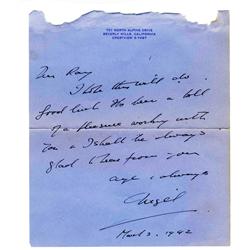 721 NORTH ALPINE DRIVE
BEVERLY HILLS, CALIFORNIA
CRESTVIEW
Dear Ray
I hope this will do.
Good luck. It's been a
of a pleasure working with
you & I shall be always
glad to hear from you
aye & always
Nigel
March 3. 1942